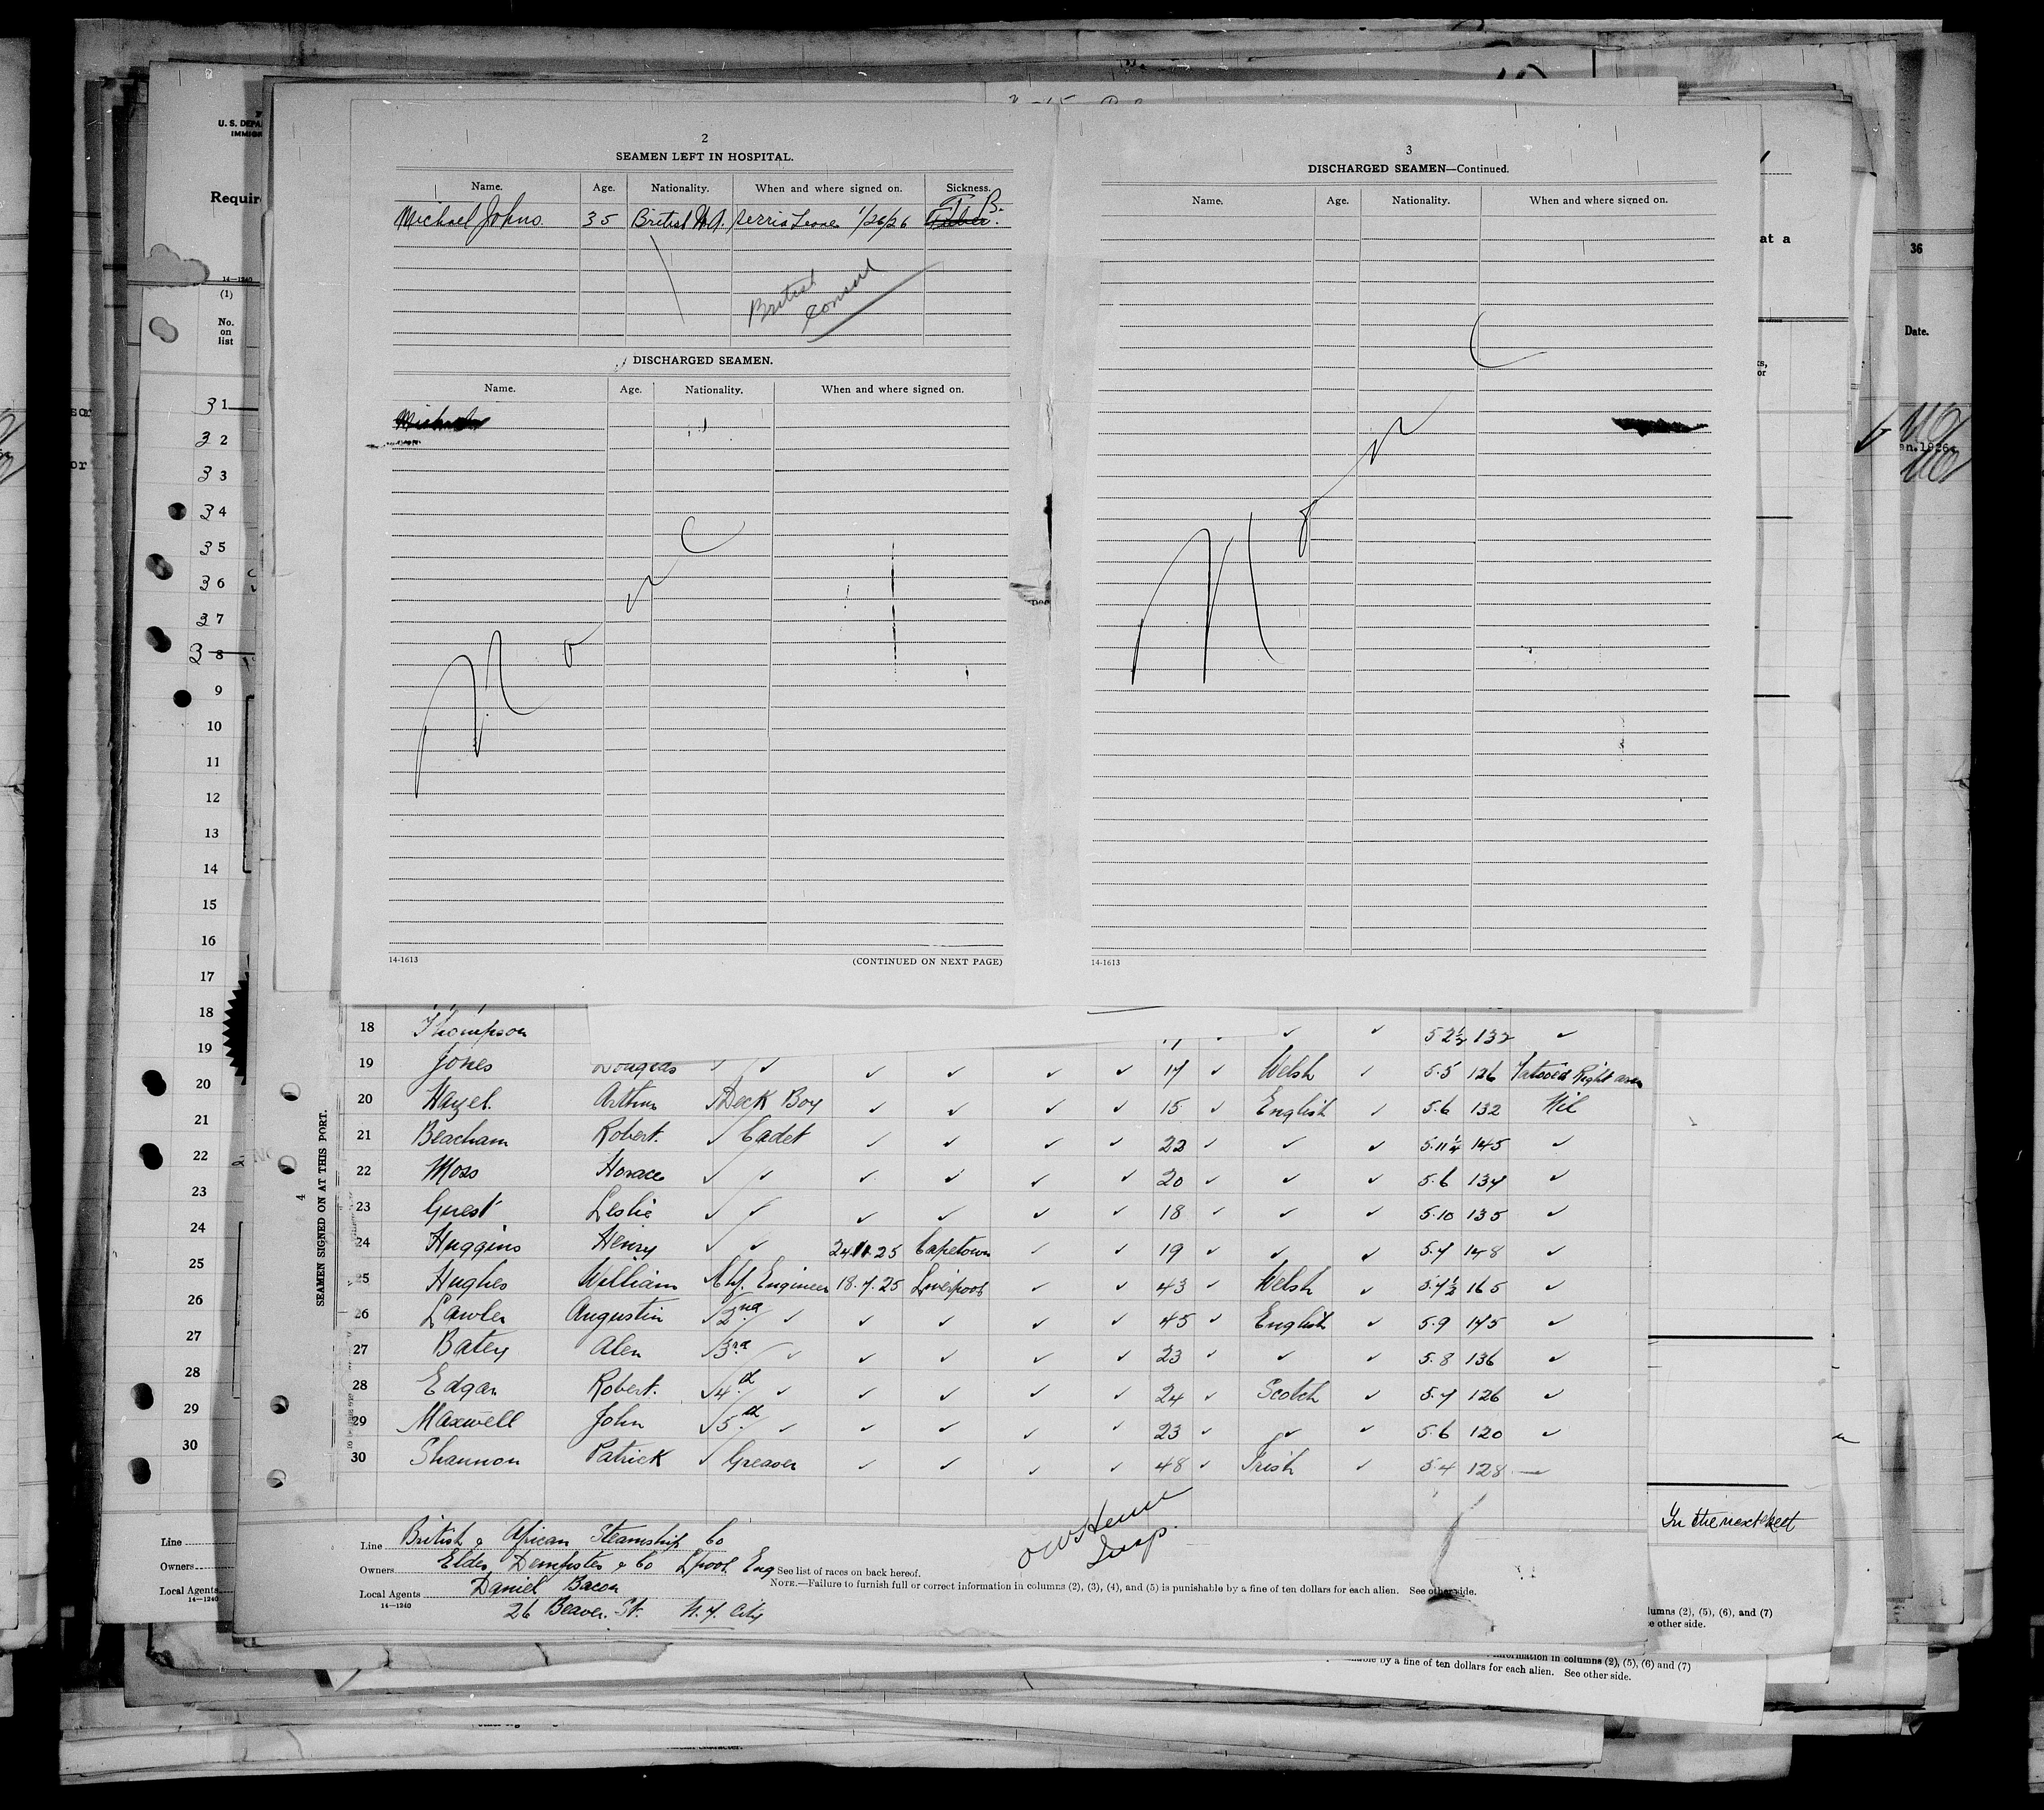 2
SEAMEN LEFT IN HOSPITAL.
Name. Age. Nationality. When and where signed on. Sickness.
Michael Johns. 35 British W.A. Serria Leone 1/26/26 T.B.
British
Consul
DISCHARGED SEAMEN.
Name. Age. Nationality. When and where signed on.
None
14-1613
(CONTINUED ON NEXT PAGE)
3
DISCHARGED SEAMEN—Continued.
Name. Age. Nationality. When and where signed on.
None
14-1613
U. S. DEPA
IMMIGR
Requir
14—1240
(1)
No.
on
list
31
32
33
34
35
36
37
38
9
10
11
12
13
14
15
16
17
18
19
20
21
22
23
24
25
26
27
28
29
30
Line
Owners
Local Agents
14—1240
at a
36
Date.
an.1926
4
SEAMEN SIGNED ON AT THIS PORT.
18 Thompson ✓ ✓ 5 2½ 132 ✓
19 Jones Douglas ✓ ✓ ✓ ✓ ✓ ✓ 17 ✓ Welsh ✓ 5.5 126 Tatooed Right arm
20 Hazel. Arthur ✓ Deck Boy ✓ ✓ ✓ ✓ 15 ✓ English ✓ 5.6 132 Nil
21 Beacham Robert. ✓ Cadet ✓ ✓ ✓ ✓ 22 ✓ ✓ ✓ 5.11¼ 145 ✓
22 Moss Horace ✓ ✓ ✓ ✓ ✓ ✓ 20 ✓ ✓ ✓ 5.6 134 ✓
23 Guest Leslie ✓ ✓ ✓ ✓ ✓ ✓ 18 ✓ ✓ ✓ 5.10 135 ✓
24 Huggins Henry ✓ ✓ 24.11.25 Capetown ✓ ✓ 19 ✓ ✓ ✓ 5.7 148 ✓
25 Hughes William ✓ Chf. Engineer 18.7.25 Liverpool ✓ ✓ 43 ✓ Welsh ✓ 5.7½ 165 ✓
26 Lawler Augustin ✓ 2nd ✓ ✓ ✓ ✓ ✓ 45 ✓ English ✓ 5.9 175 ✓
27 Batey Alen ✓ 3rd ✓ ✓ ✓ ✓ ✓ 23 ✓ ✓ ✓ 5.8 136 ✓
28 Edgar Robert. ✓ 4th ✓ ✓ ✓ ✓ ✓ 24 ✓ Scotch ✓ 5.7 126 ✓
29 Maxwell John ✓ 5th ✓ ✓ ✓ ✓ ✓ 23 ✓ ✓ ✓ 5.6 120 ✓
30 Shannon Patrick ✓ Greaser ✓ ✓ ✓ ✓ 48 ✓ Irish ✓ 5.4 128 —
Line British & African Steamship Co
Owners Elder Dempster & Co L'pool Eng
Local Agents Daniel Bacon
14—1240
26 Beaver. St. N.Y. City
Insp.
See list of races on back hereof.
NOTE.—Failure to furnish full or correct information in columns (2), (3), (4), and (5) is punishable by a fine of ten dollars for each alien. See other side.
In the next sheet
lumns (2), (5), (6), and (7)
e other side.
information in columns (2), (5), (6) and (7)
able by a fine of ten dollars for each alien. See other side.